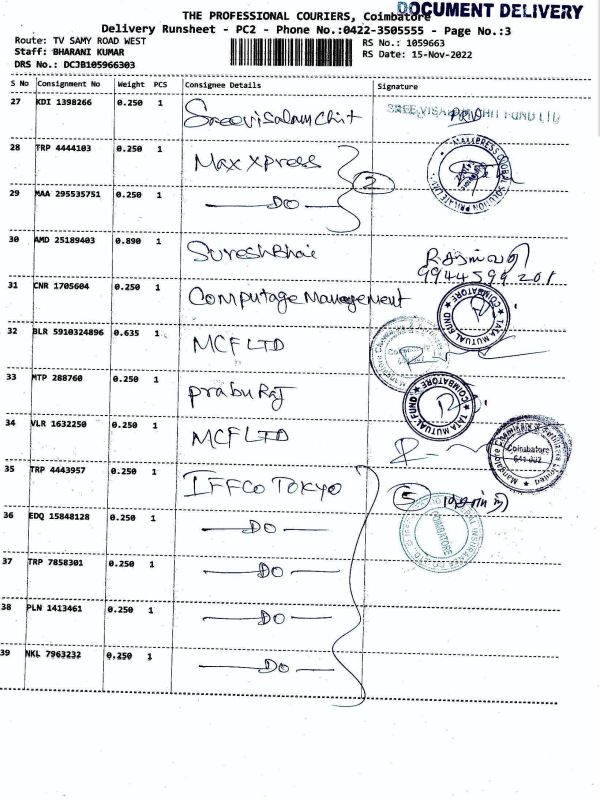 DOCUMENT DELIVERY
THE PROFESSIONAL COURIERS, Coimbatore
Delivery Runsheet - PC2 - Phone No.:0422-3505555 - Page No.:3
Route: TV SAMY ROAD WEST
RS No.: 1059663
Staff: BHARANI KUMAR
RS Date: 15-Nov-2022
DRS No.: DCJB105966303
S No Consignment No Weight PCS Consignee Details Signature
27 KDI 1398266 0.250 1 Sreevisalam chit
SREE VISALAM CHIT FUND LTD
28 TRP 4444103 0.250 1 Max Xpress
2
29 MAA 295535751 0.250 1 DO
30 AMD 25189403 0.890 1 Sureshbhai
9944599201
31 CNR 1705604 0.250 1 Computage Management
TATA MUTUAL FUND ★ COIMBATORE ★
32 BLR 5910324896 0.635 1 MCF LTD
33 MTP 288760 0.250 1 prabu Raj
TATA MUTUAL FUND ★ COIMBATORE ★
34 VLR 1632250 0.250 1 MCF LTD
Mangalore Chemicals & Fertilizers Limited
Coimbatore
641 002
35 TRP 4443957 0.250 1 IFFCO TOKYO
5
36 EDQ 15848128 0.250 1 DO
COIMBATORE
37 TRP 7858301 0.250 1 DO
38 PLN 1413461 0.250 1 DO
39 NKL 7963232 0.250 1 DO